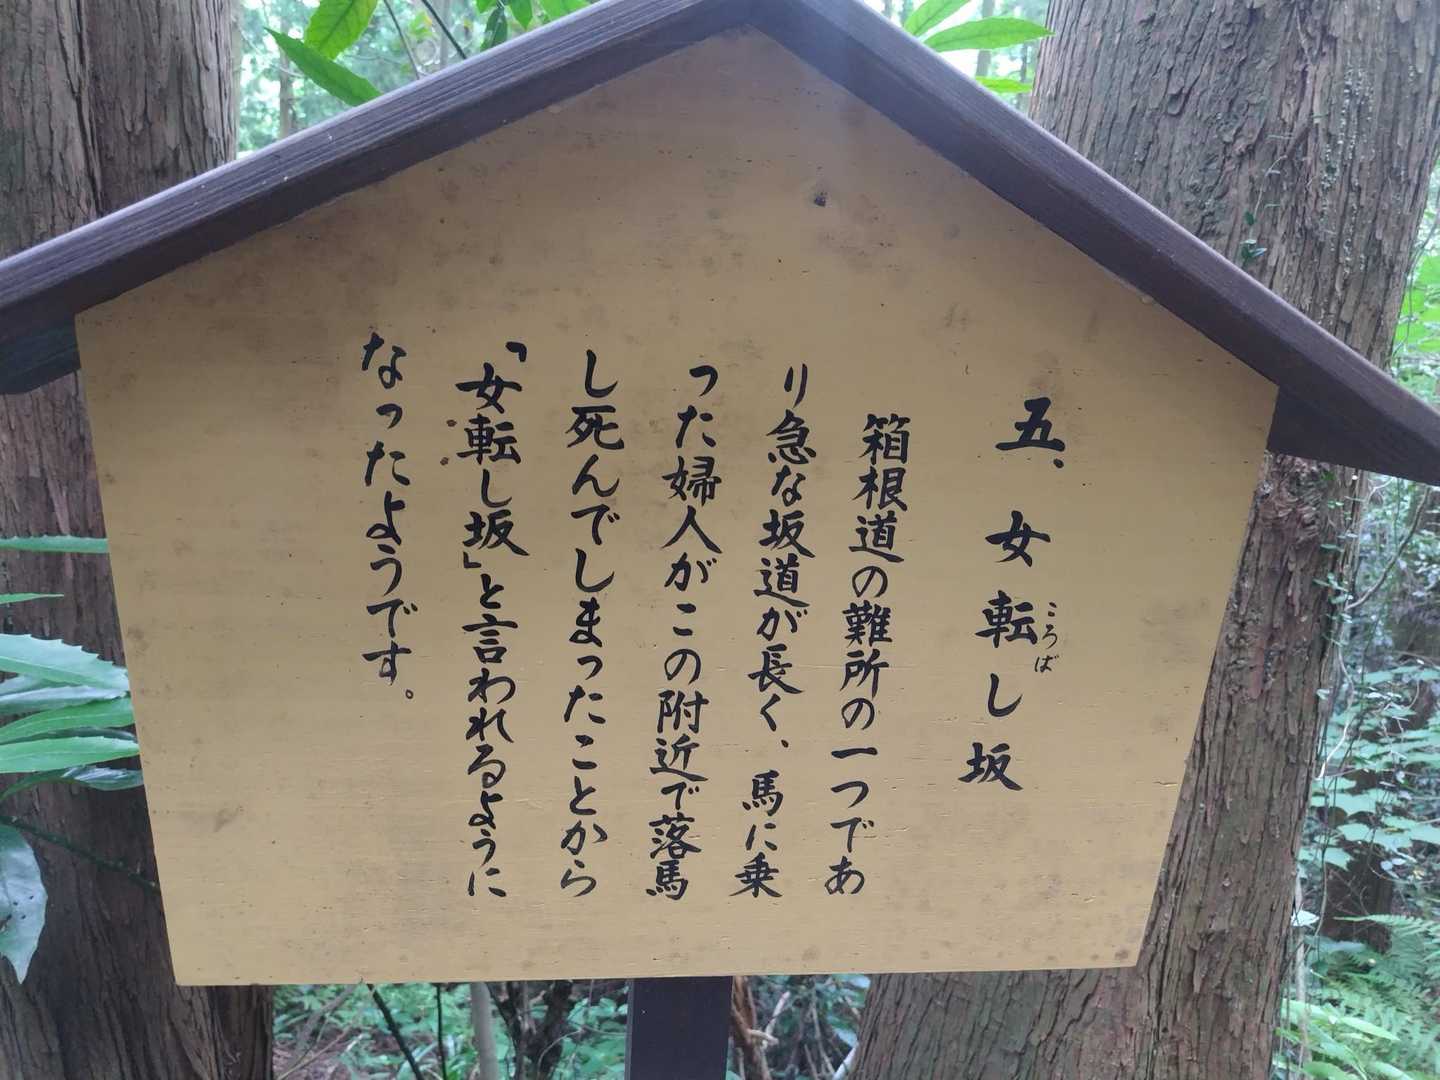 五、女転し坂
ころば
箱根道の難所の一つであ
り急な坂道が長く、馬に乗
った婦人がこの附近で落馬
し死んでしまったことから
「女転し坂」と言われるように
なったようです。